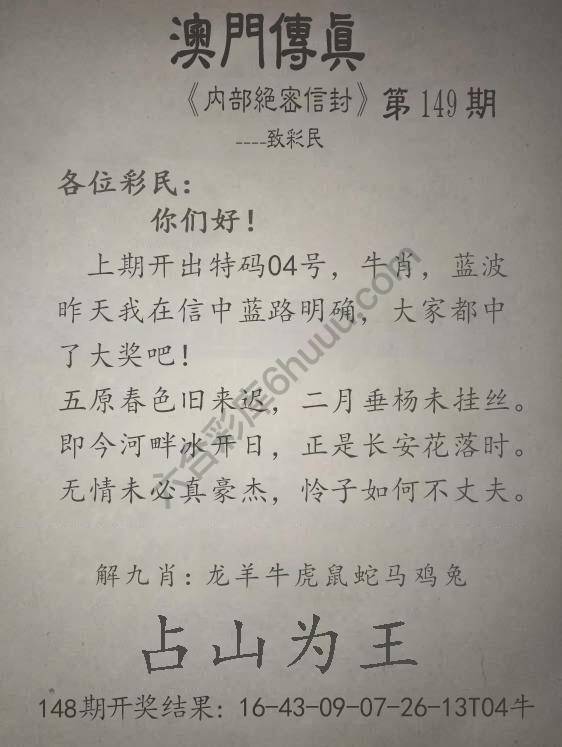 澳門傳眞
《内部絕密信封》第149期
----致彩民
各位彩民：
你们好！
上期开出特码04号，牛肖，蓝波
昨天我在信中蓝路明确，大家都中
了大奖吧！
五原春色旧来迟，二月垂杨未挂丝。
即今河畔冰开日，正是长安花落时。
无情未必真豪杰，怜子如何不丈夫。
六合彩库6huuu.com
解九肖：龙羊牛虎鼠蛇马鸡兔
占山为王
148期开奖结果：16-43-09-07-26-13T04牛